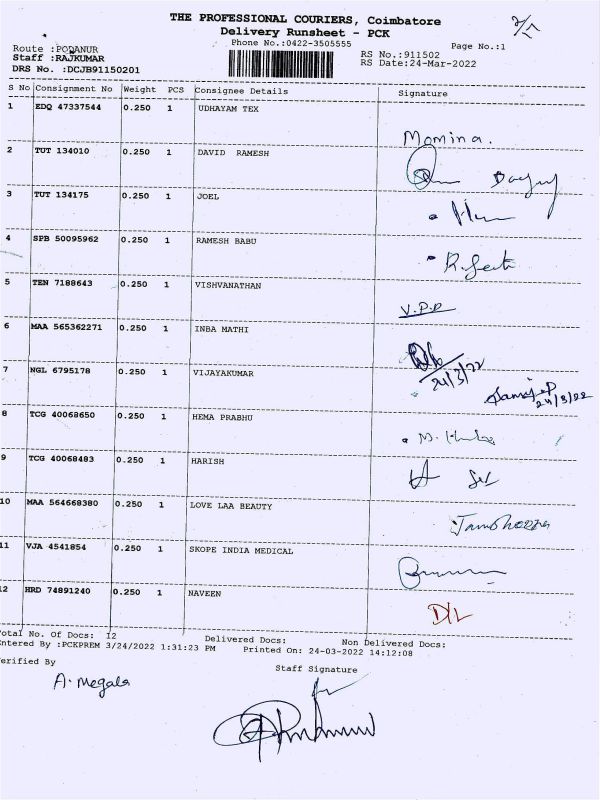 THE PROFESSIONAL COURIERS, Coimbatore
Delivery Runsheet - PCK
Phone No.:0422-3505555
Page No.:1
Route :PODANUR
Staff :RAJKUMAR
DRS No. :DCJB91150201
RS No.:911502
RS Date:24-Mar-2022
S No Consignment No Weight PCS Consignee Details Signature
1 EDQ 47337544 0.250 1 UDHAYAM TEX
Momina.
2 TUT 134010 0.250 1 DAVID RAMESH
3 TUT 134175 0.250 1 JOEL
4 SPB 50095962 0.250 1 RAMESH BABU
5 TEN 7188643 0.250 1 VISHVANATHAN
V.P.P
6 MAA 565362271 0.250 1 INBA MATHI
24/3/22
7 NGL 6795178 0.250 1 VIJAYAKUMAR
24/3/22
8 TCG 40068650 0.250 1 HEMA PRABHU
9 TCG 40068483 0.250 1 HARISH
10 MAA 564668380 0.250 1 LOVE LAA BEAUTY
11 VJA 4541854 0.250 1 SKOPE INDIA MEDICAL
12 HRD 74891240 0.250 1 NAVEEN
D/L
Total No. Of Docs: 12 Delivered Docs: Non Delivered Docs:
Entered By :PCKPREM 3/24/2022 1:31:23 PM Printed On: 24-03-2022 14:12:08
Verified By Staff Signature
A. Megala